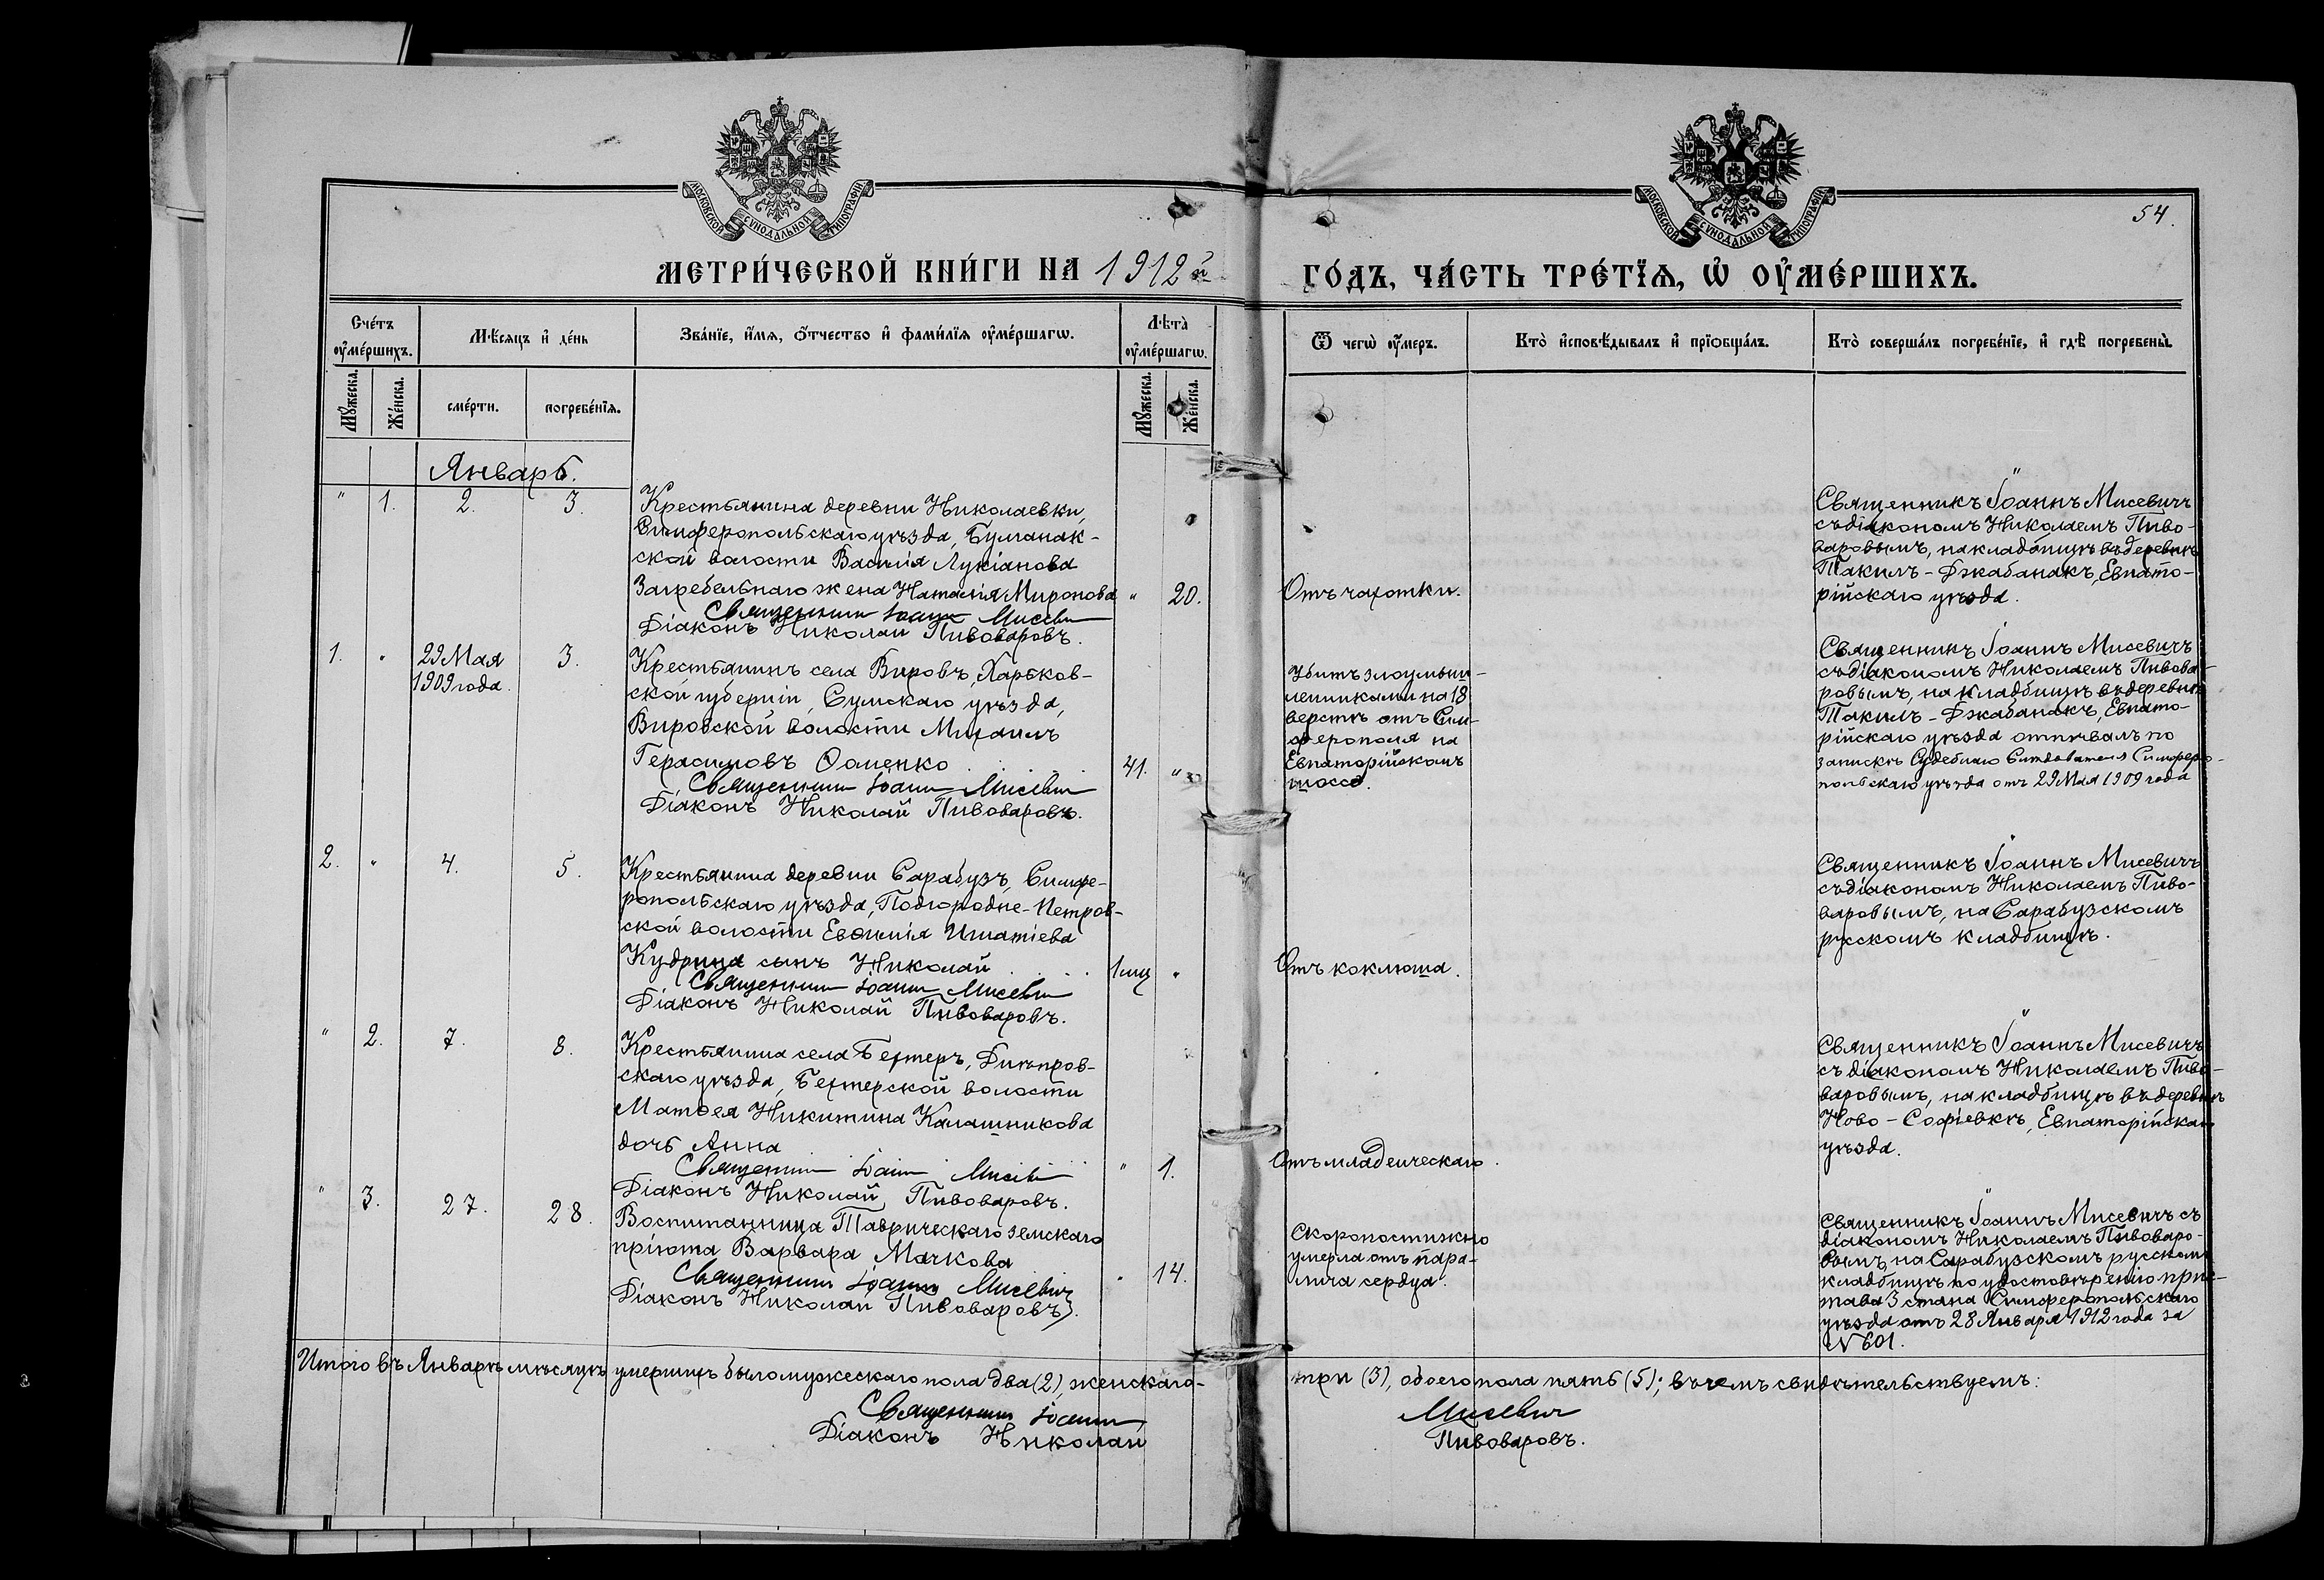 МОСКОВСКОЙ СѴНОДАЛЬНОЙ ТИПОГРАФІИ
МОСКОВСКОЙ СѴНОДАЛЬНОЙ ТИПОГРАФІИ
54.
МЕТРИ́ЧЕСКОЙ КНИ́ГИ НА 1912й
ГО́ДЪ, ЧА́СТЬ ТРЕ́ТЇѦ, Ѡ҆ ОУ҆МЕ́РШИХЪ.
Сче́тъ
оу҆ме́ршихъ.
Мѣ́сѧцъ и҆ де́нь
Зва́нїе, и҆́мѧ, ѻ҆́тчество и҆ фами́лїѧ оу҆ме́ршагѡ.
Лѣ́та
оу҆ме́ршагѡ.
Ѿ чегѡ̀ оу҆́меръ.
Кто̀ и҆сповѣ́дывалъ и҆ прїѡбща́лъ.
Кто̀ соверша́лъ погребе́нїе, и҆ гдѣ̀ погребены̀.
Мꙋ́жеска.
Же́нска.
сме́рти.
погребе́нїѧ.
Мꙋ́жеска.
Же́нска.
Январь.
" 1. 2. 3.
Крестьянина деревни Николаевки,
Симферопольскаго уѣзда, Булганак-
ской волости Василія Лукіанова
Загребельнаго жена Наталія Миронова " 20.
Священник Іоанн Мисевич
Діаконъ Николай Пивоваровъ.
Отъ чахотки.
Священникъ Іоаннъ Мисевичъ
съ діакономъ Николаемъ Пиво-
варовымъ, на кладбищѣ въ деревнѣ
Такилъ-Джабанакъ, Евпато-
рійскаго уѣзда.
1. " 29 Мая 3.
1909 года.
Крестьянинъ села Вировъ, Харьков-
ской губерніи, Сумскаго уѣзда,
Вировской волости Михаилъ
Герасимовъ Ѳоменко 41. "
Священник Іоанн Мисевич
Діаконъ Николай Пивоваровъ.
Убитъ злоумыш-
ленниками на 18
верстѣ отъ Сим-
ферополя на
Евпаторійскомъ
шоссе.
Священникъ Іоаннъ Мисевичъ
съ діакономъ Николаемъ Пивова-
ровымъ, на кладбищѣ въ деревнѣ
Такилъ-Джабанакъ, Евпато-
рійскаго уѣзда отпѣвалъ по
запискѣ Судебнаго Слѣдователя Симферо-
польскаго уѣзда отъ 29 Мая 1909 года
2. " 4. 5.
Крестьянина деревни Сарабузъ, Симфе-
ропольскаго уѣзда, Подгородне-Петров-
ской волости Евѳимія Игнатіева
Кудрица сынъ Николай 1 мц "
Священник Іоанн Мисевич
Діаконъ Николай Пивоваровъ.
Отъ коклюша.
Священникъ Іоаннъ Мисевичъ
съ діакономъ Николаемъ Пиво-
варовымъ, на Сарабузскомъ
русскомъ кладбищѣ.
" 2. 7. 8.
Крестьянина села Бехтеръ, Днѣпров-
скаго уѣзда, Бехтерской волости
Матѳея Никитина Калашникова
дочь Анна " 1.
Священник Іоанн Мисевич
Діаконъ Николай Пивоваровъ.
Отъ младенческаго.
Священникъ Іоаннъ Мисевичъ
съ діакономъ Николаемъ Пиво-
варовымъ, на кладбищѣ въ деревнѣ
Ново-Софіевкѣ, Евпаторійскаго
уѣзда.
" 3. 27. 28.
Воспитанница Таврическаго земскаго
пріюта Варвара Мачкова
" 14.
Священник Іоанн Мисевич
Діаконъ Николай Пивоваровъ.
Скоропостижно
умерла отъ пара-
лича сердца.
Священникъ Іоаннъ Мисевичъ съ
діакономъ Николаемъ Пивоваро-
вымъ, на Сарабузскомъ русскомъ
кладбищѣ по удостовѣренію прис-
тава 3 стана Симферопольскаго
уѣзда отъ 28 Января 1912 года за
№ 601.
Итого въ Январѣ мѣсяцѣ умершихъ было мужескаго пола два (2), женскаго-
три (3), обоего пола пять (5); въ чемъ свидѣтельствуемъ:
Священник Іоанн Мисевич
Діаконъ Николай Пивоваровъ.